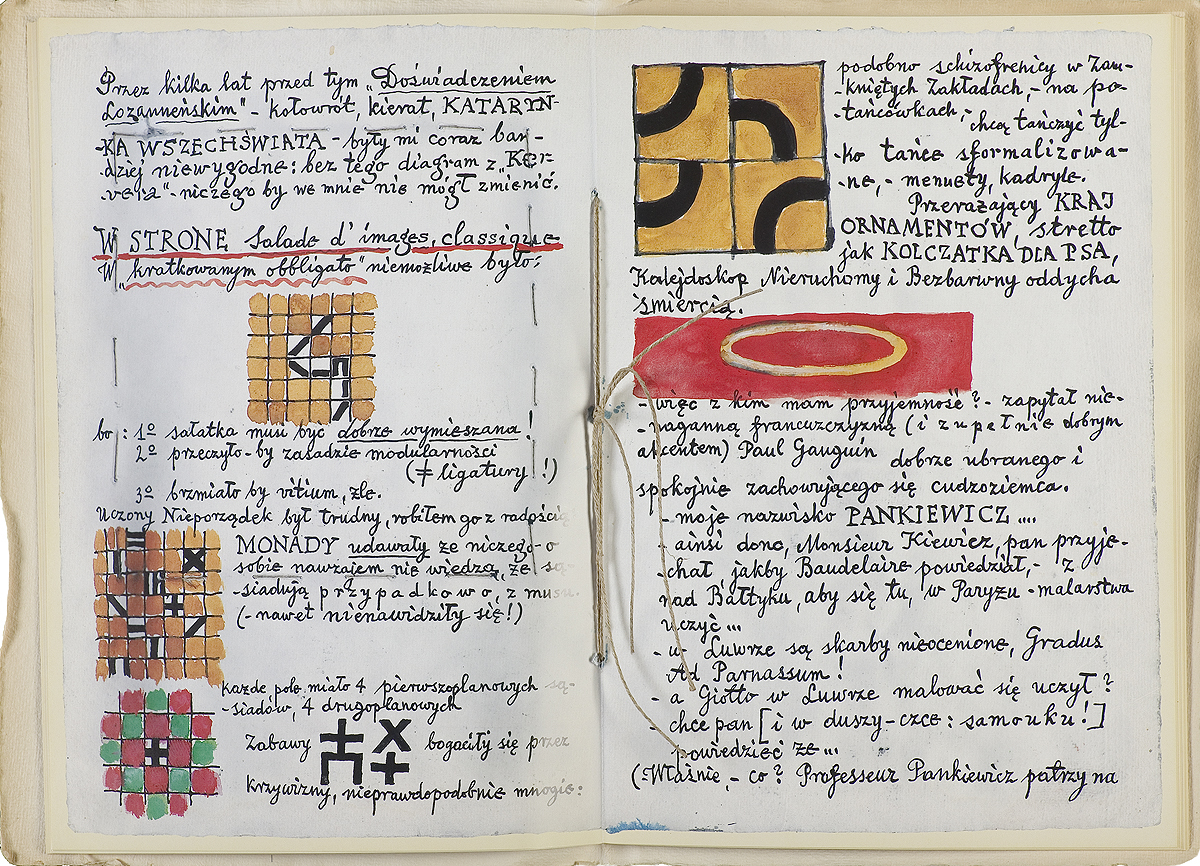 Przez kilka lat przed tym „Doświadczeniem
Lozanneńskim" - kołowrót, kierat, KATARYN-
-KA WSZECHŚWIATA - były mi coraz bar-
-dziej niewygodne: bez tego diagram z „Ker-
-vera" - niczego by we mnie nie mógł zmienić.
W STRONE Salade d'images, classique
W „kratkowanym obbligato" niemożliwe było:
bo: 1º sałatka musi być dobrze wymieszana!
2º przeczyło-by zasadzie modularności
(≠ ligatury!)
3º brzmiało by vitium, złe.
Uczony Nieporządek był trudny, robiłem go z radością
MONADY udawały że niczego o
sobie nawzajem nie wiedzą, że są-
-siadują przypadkowo, z musu.
(- nawet nienawidziły się!)
każde pole miało 4 pierwszoplanowych są-
-siadów, 4 drugoplanowych
Zabawy bogaciły się przez
krzywizny, nieprawdopodobnie mnogie:
podobno schizofrenicy w Zam-
-kniętych Zakładach, - na po-
-tańcówkach, - chcą tańczyć tyl-
-ko tańce sformalizowa-
-ne, - menuety, kadryle.
Przerażający KRAJ
ORNAMENTÓW, stretto
jak KOLCZATKA DLA PSA,
Kalejdoskop Nieruchomy i Bezbarwny oddycha
śmiercią.
- więc z kim mam przyjemność? - zapytał nie-
-naganną francuzczyzną (i zupełnie dobrym
akcentem) Paul Gauguin dobrze ubranego i
spokojnie zachowującego się cudzoziemca.
- moje nazwisko PANKIEWICZ ....
- ainsi donc, Monsieur Kiewicz, pan przyje-
-chał jakby Baudelaire powiedział, - z
nad Bałtyku, aby się tu, w Paryżu - malarstwa
uczyć ...
- w Luwrze są skarby nieocenione, Gradus
Ad Parnassum!
- a Giotto w Luwrze malować się uczył?
- chce pan [i w duszy-czce: samouku!]
powiedzieć że ...
(- Właśnie, - co? Professeur Pankiewicz patrzy na